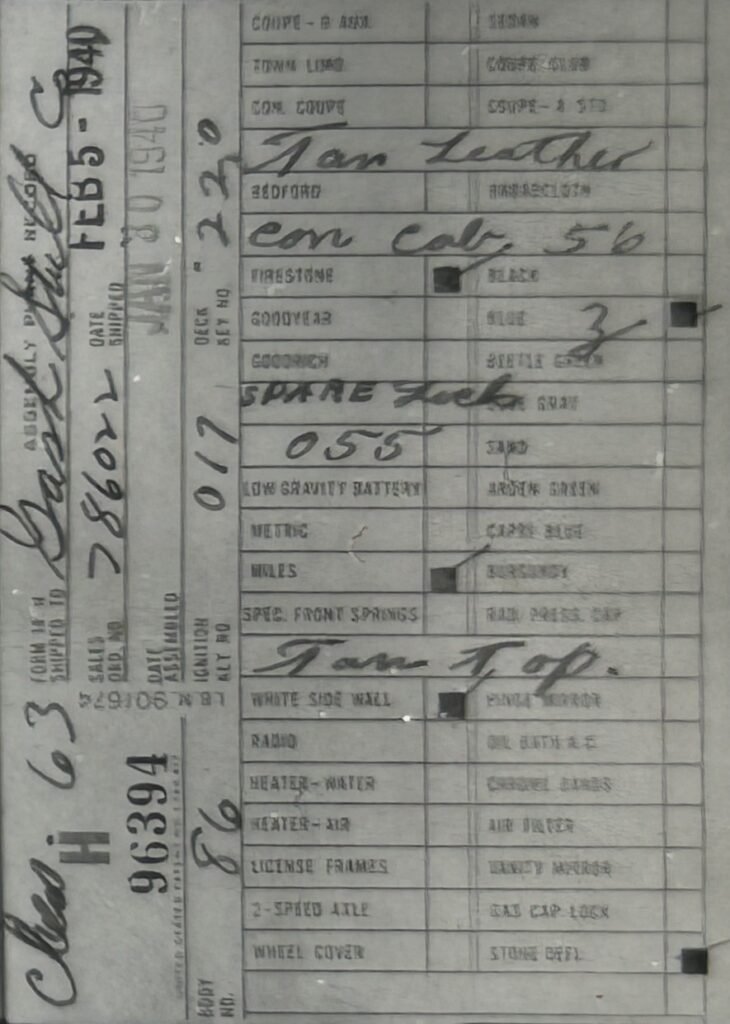 Chas. 63
H
96394
FORM 18 H
SHIPPED TO
ASSEMBLY RECORD
SALES
ORD. NO. 786022
DATE
SHIPPED
FEB 5 - 1940
DATE
ASSEMBLED
JAN 30 1940
BODY
NO. 86
IGNITION
KEY NO 017
DECK
KEY NO. 220
COUPE - B
SEDAN
TOWN LIMO
CON. COUPE
COUPE - A STD
Tan Leather
BEDFORD
Con Cab. 56
FIRESTONE BLACK
GOODYEAR BLUE 3
GOODRICH
SPARE Lock GRAY
055 SAND
LOW GRAVITY BATTERY ARDEN GREEN
METRIC CAPRI BLUE
MILES BURGUNDY
SPEC. FRONT SPRINGS RAD. PRESS. CAP
Tan Top.
WHITE SIDE WALL MIRROR
RADIO OIL BATH A.C.
HEATER-WATER
HEATER-AIR AIR FILTER
LICENSE FRAMES VANITY MIRROR
2-SPEED AXLE GAS CAP LOCK
WHEEL COVER STONE DEFL